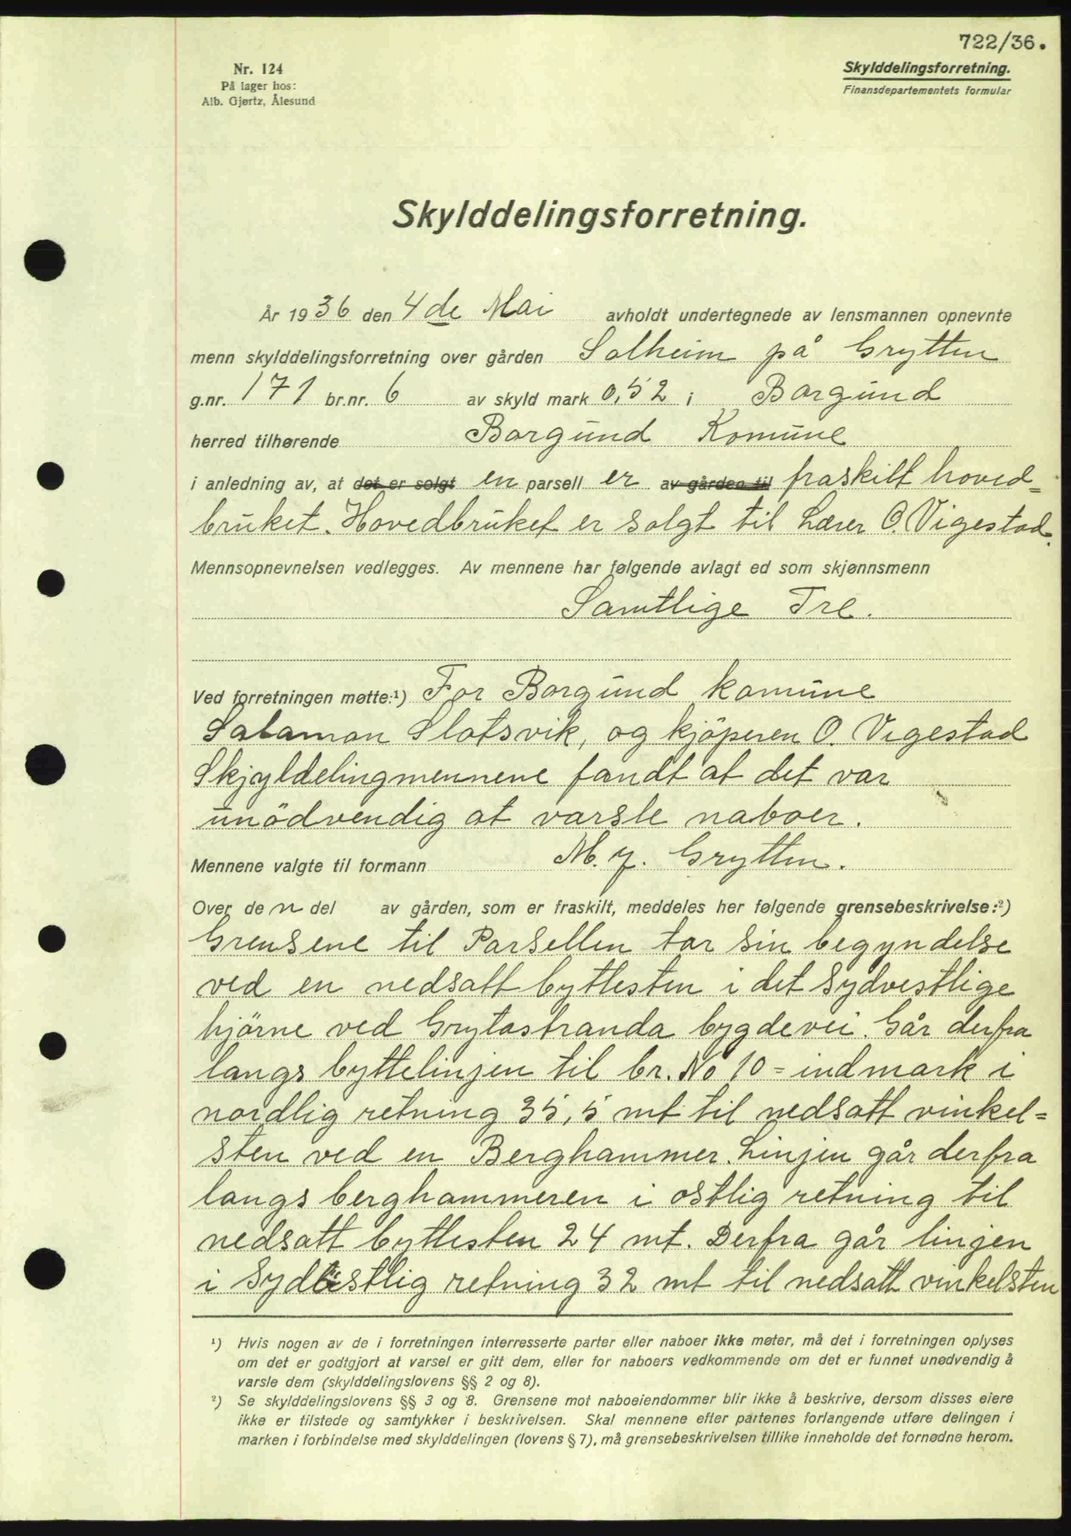 722/36.
Nr. 124
På lager hos:
Alb. Gjørtz, Ålesund
Skylddelingsforretning.
Finansdepartementets formular
Skylddelingsforretning.
År 1936 den 4de Mai avholdt undertegnede av lensmannen opnevnte
menn skylddelingsforretning over gården Solheim på Grytten
g.nr. 171 br.nr. 6 av skyld mark 0,52 i Borgund
herred tilhørende Borgund Komune
i anledning av, at det er solgt en parsell er av gården til fraskilt hoved=
bruket. Hovedbruket er solgt til Lærer O. Vigestad.
Mennsopnevnelsen vedlegges. Av mennene har følgende avlagt ed som skjønnsmenn
Samtlige Tre.
Ved forretningen møtte:¹) For Borgund komune
Salamon Slotsvik, og kjöperen O. Vigestad
Skjyldelingmennene fandt at det var
unödvendig at varsle naboer.
Mennene valgte til formann M. J. Grytten.
Over den del av gården, som er fraskilt, meddeles her følgende grensebeskrivelse:²)
Grensene til Parsellen tar sin begyndelse
ved en nedsatt byttesten i det Sydvestlige
hjörne ved Grytastranda bygdevei. Går derfra
langs byttelinjen til br. No 10 = indmark i
nordlig retning 35,5 mt til nedsatt vinkel=
sten ved en Berghammer. Linjen går derfra
langs berghammeren i östlig retning til
nedsatt byttesten 24 mt. Derfra går linjen
i Sydöstlig retning 32 mt til nedsatt vinkelsten
¹) Hvis nogen av de i forretningen interresserte parter eller naboer ikke møter, må det i forretningen oplyses
om det er godtgjort at varsel er gitt dem, eller for naboers vedkommende om det er funnet unødvendig å
varsle dem (skylddelingslovens §§ 2 og 8).
²) Se skylddelingslovens §§ 3 og 8. Grensene mot naboeiendommer blir ikke å beskrive, dersom disses eiere
ikke er tilstede og samtykker i beskrivelsen. Skal mennene efter partenes forlangende utføre delingen i
marken i forbindelse med skylddelingen (lovens § 7), må grensebeskrivelsen tillike inneholde det fornødne herom.